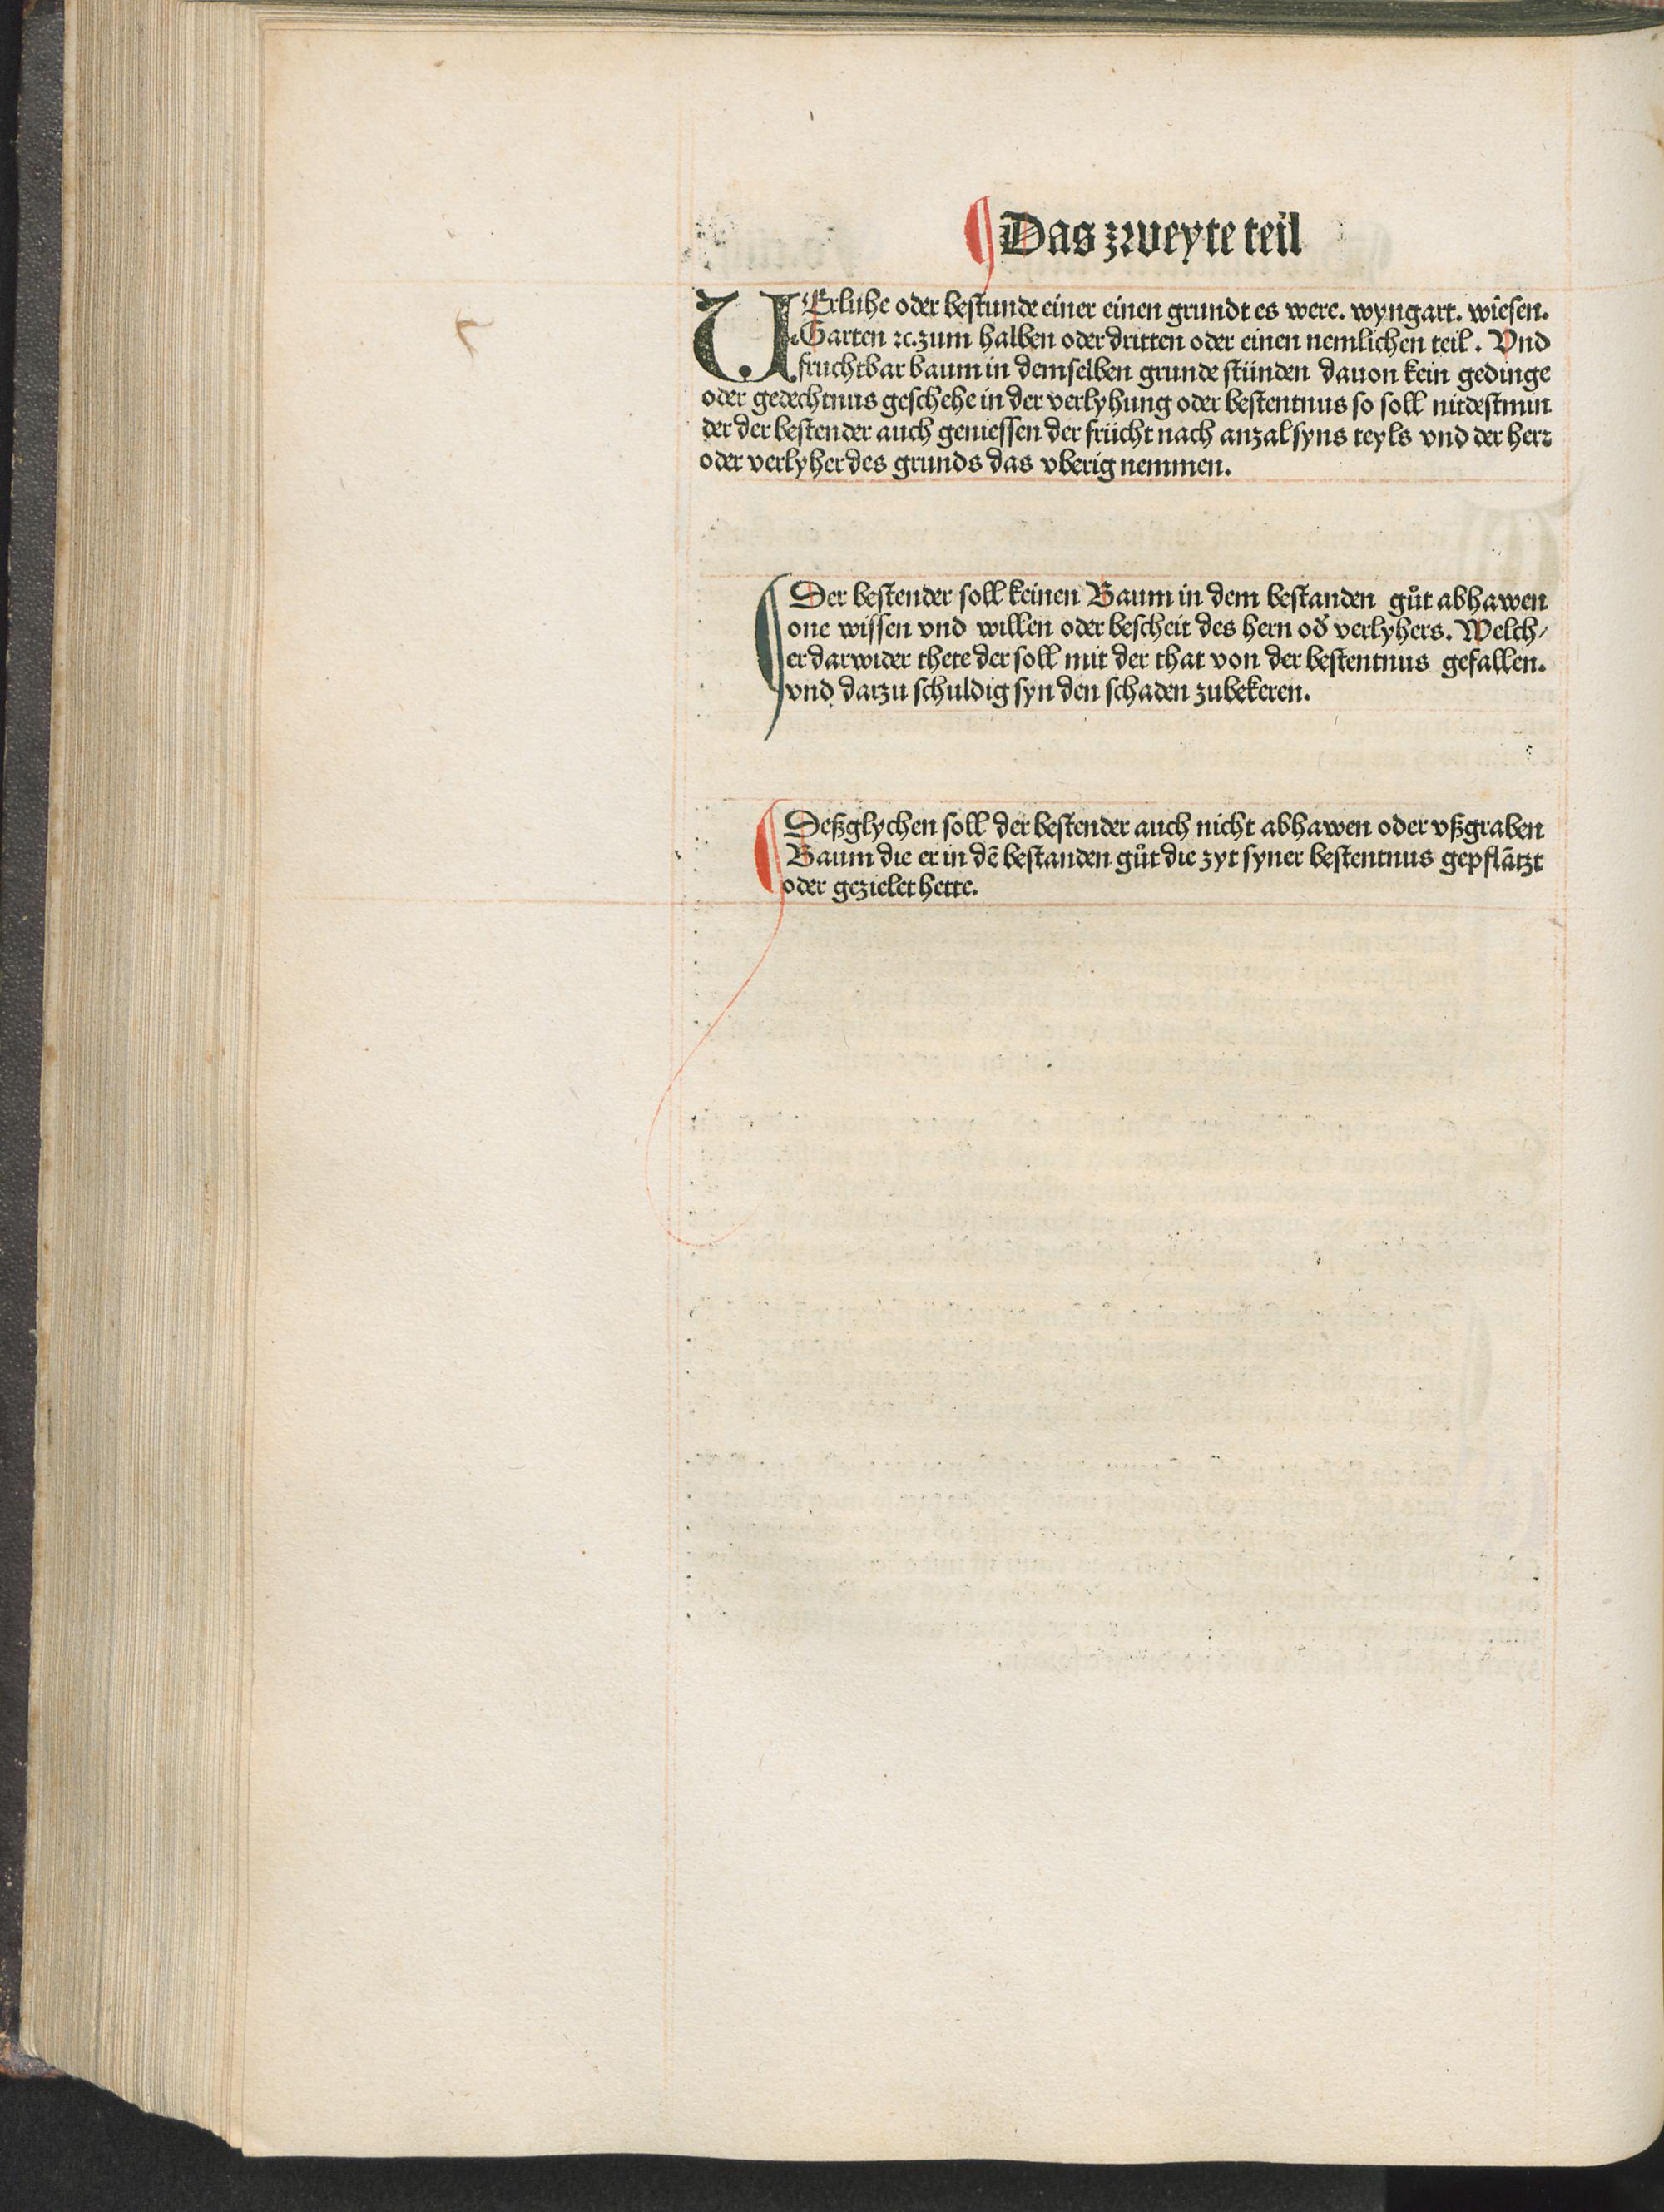 Das zweyte teil
VErluhe oder bestunde einer einen grundt es were. wyngart. wiesen.
Garten ⁊c. zum halben oder dritten oder einen nemlichen teil. Vnd
fruchtbar baum in demselben grunde stünden dauon kein gedinge
oder gedechtnus geschehe in der verlyhung oder bestentnus so soll nitdestmin
der der bestender auch geniessen der frücht nach anzal syns teyls vnd der herr
oder verlyher des grunds das vberig nemmen.
Der bestender soll keinen Baum in dem bestanden gůt abhawen
one wissen vnd willen oder bescheit des hern od̛ verlyhers. Welch⸗
er darwider thete der soll mit der that von der bestentnus gefallen.
vnd darzu schuldig syn den schaden zubekeren.
Deßglychen soll der bestender auch nicht abhawen oder vßgraben
Baum die er in dē bestanden gůt die zyt syner bestentnus gepflātzt
oder gezielet hette.